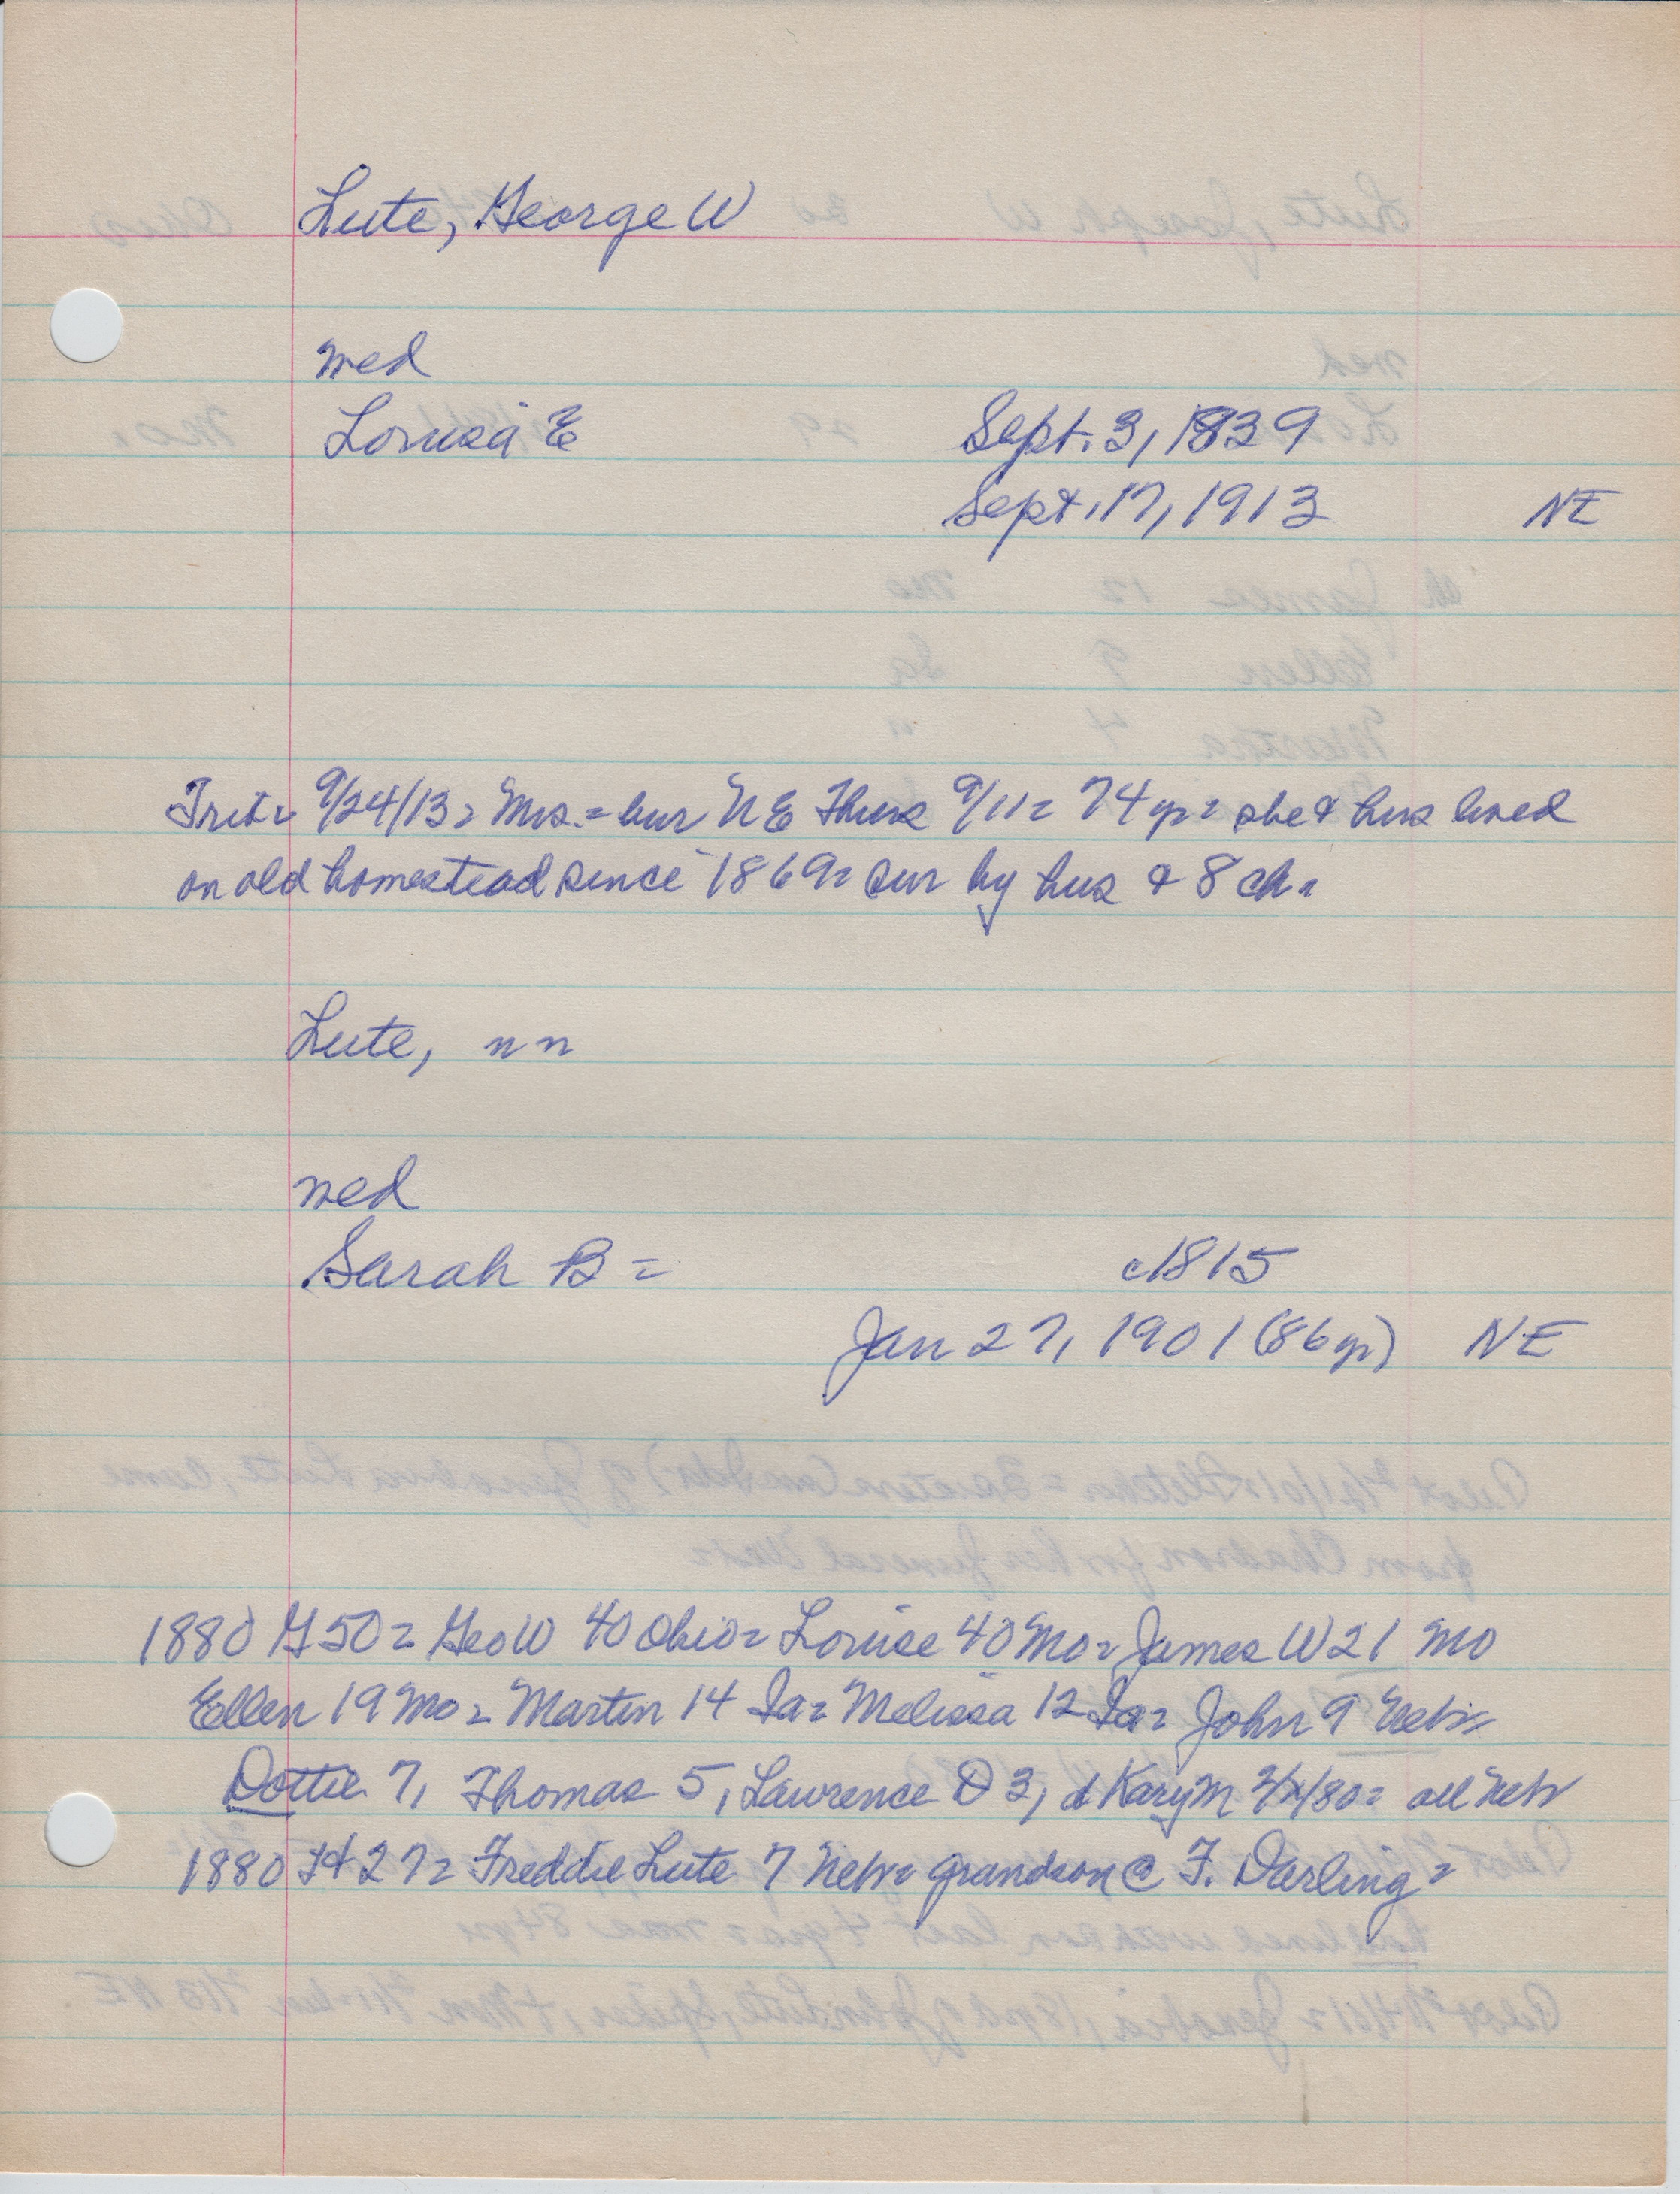 Lute, George W
med
Louisa E Sept. 3, 1839
Sept. 17, 1913 NE
Trib= 9/24/13= Mrs.= bur NE Thurs 9/11= 74 yr= she & hus lived
on old homestead since 1869= sur by hus & 8 ch=
Lute, nn
med
Sarah B= c1815
Jan 27, 1901 (86 yr) NE
1880 G50= Geo W 40 Ohio= Louise 40 Mo= James W 21 Mo
Ellen 19 Mo= Martin 14 Ia= Melissa 12 Ia= John 9 Neb=
Dottie 7, Thomas 5, Lawrence O 3, & Kary M all Neb
1880 H27= Freddie Lute 7 Neb= grandson @ F. Darling=